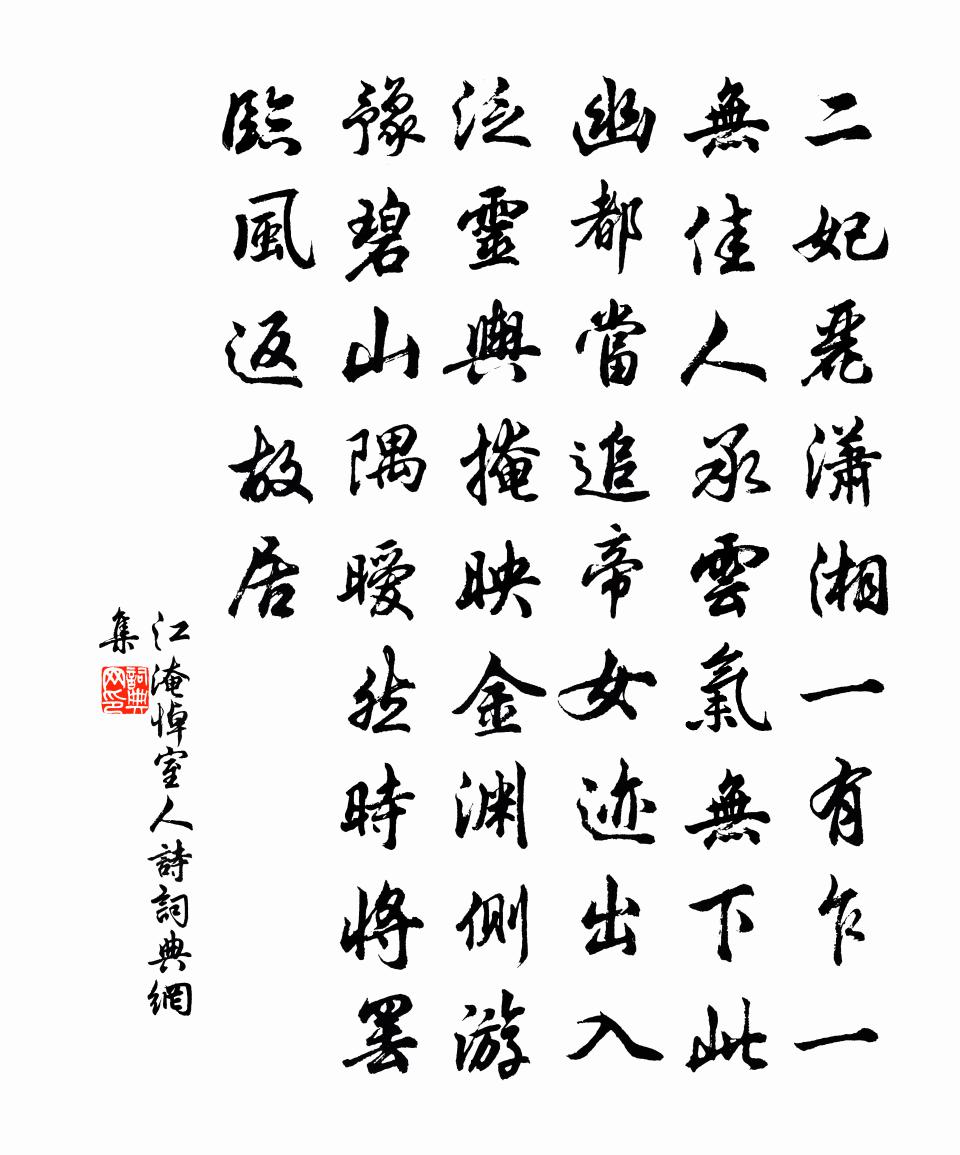 二妃麗瀟湘一有乍一
無佳人承雲氣無下此
幽都當追帝女迹出入
泛靈輿掩映金渊側游
豫碧山隅曖然時將罢
臨風返故居
江淹悼室人詩詞典網
集
詞典
网印